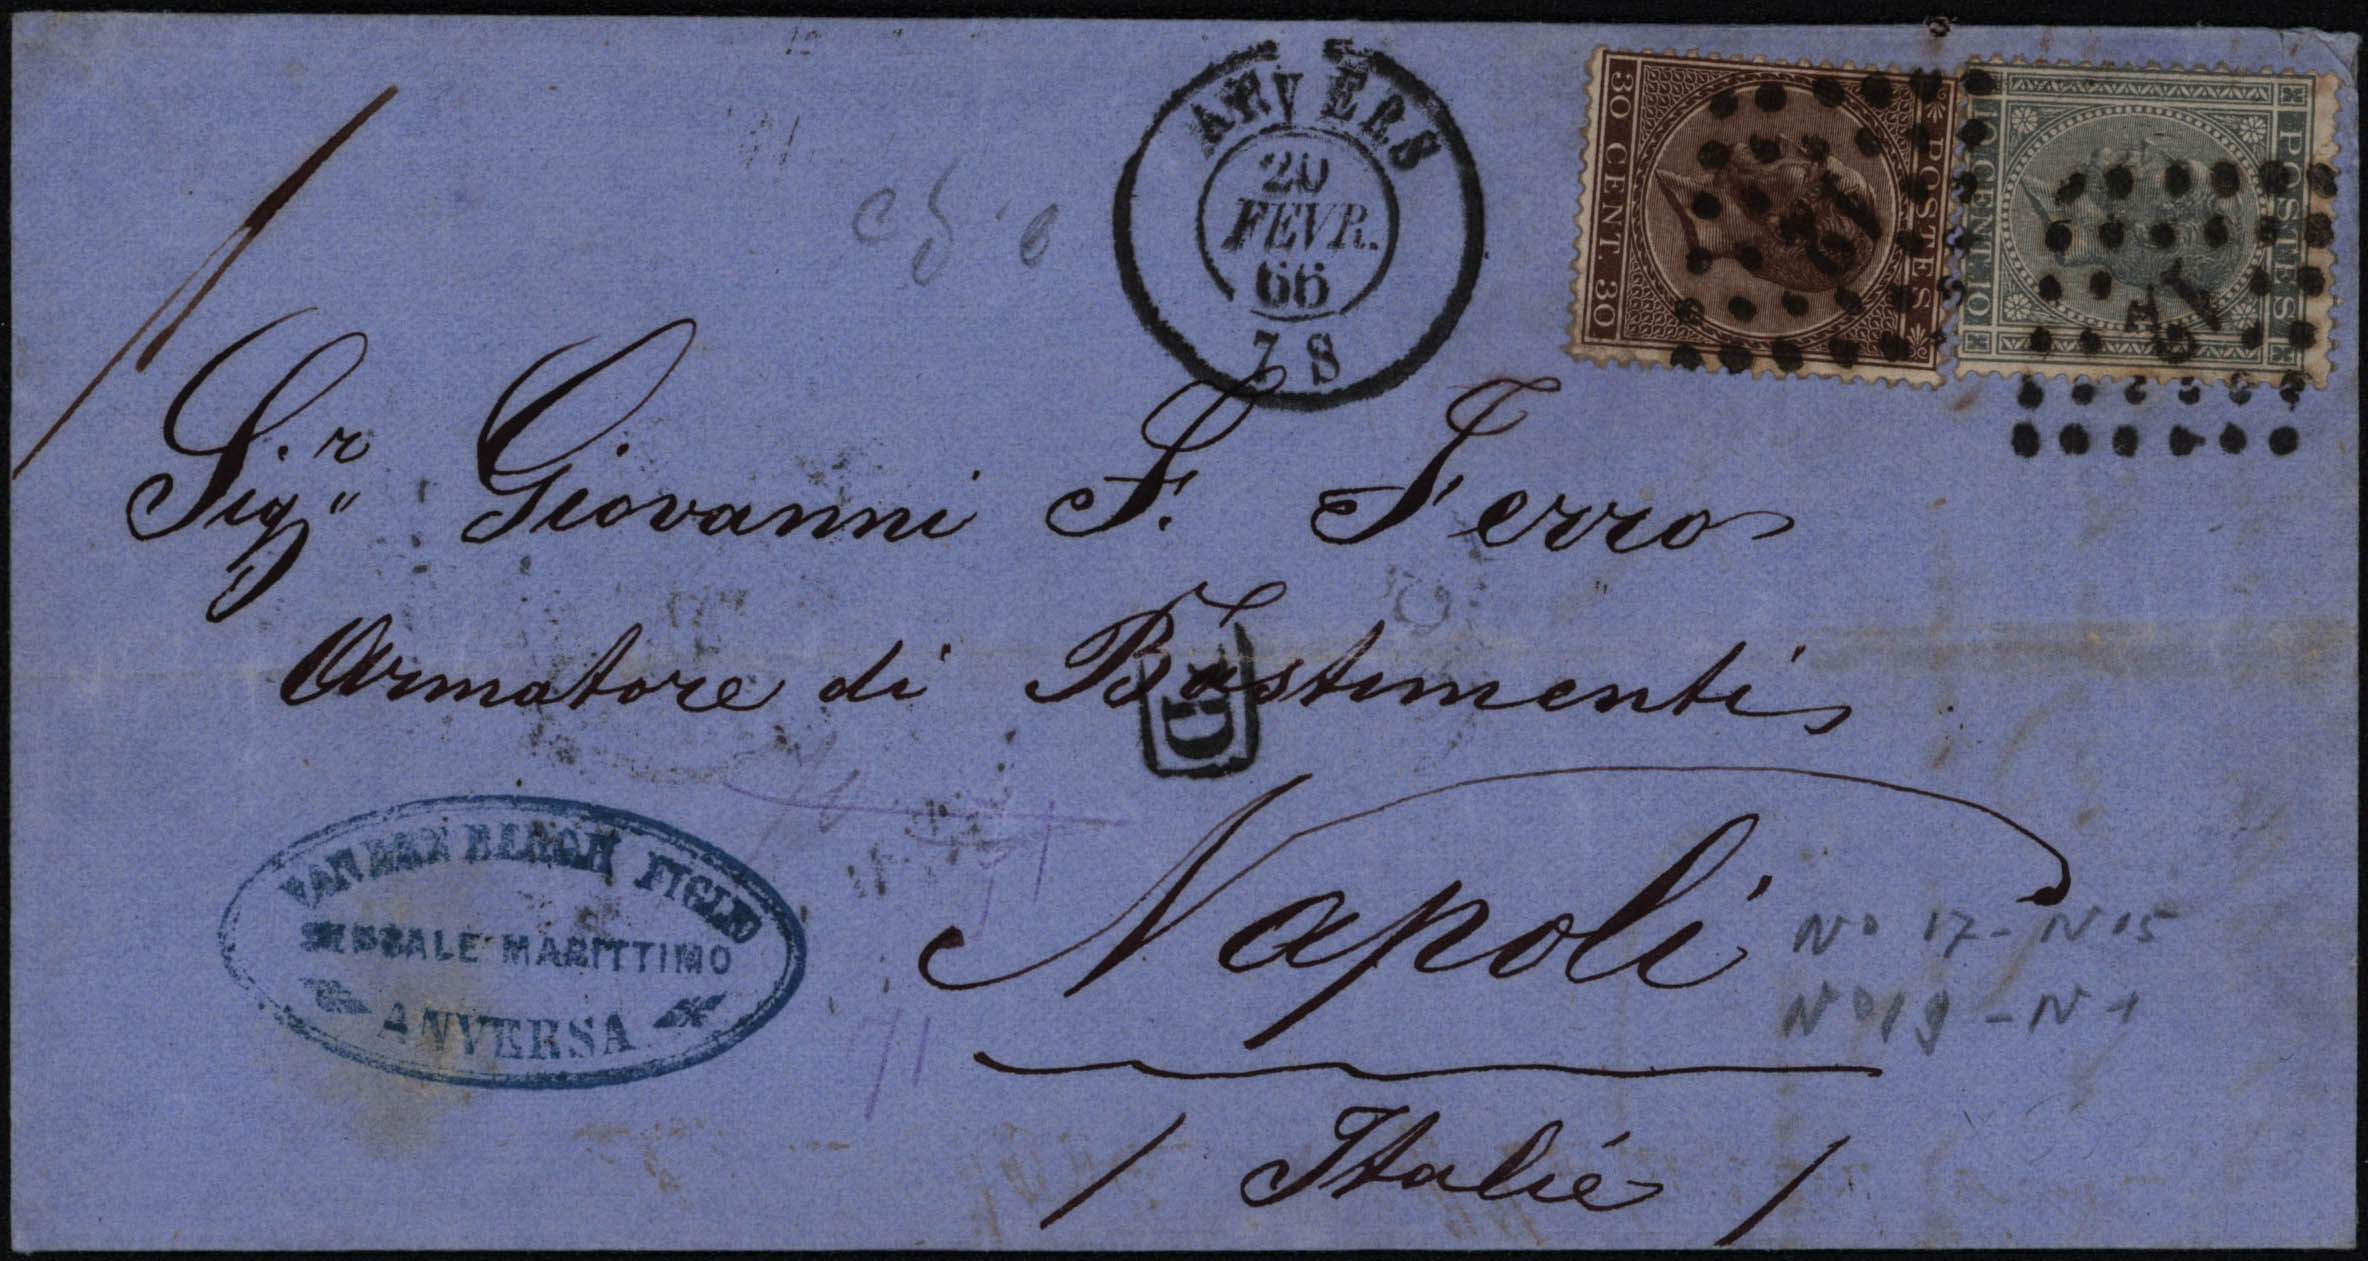 ANVERS
20
FEVR.
66
7 S
30 CENT. 30
POSTES
10 CENT. 10
POSTES
12
12
Sigr. Giovanni F. Ferro
Armatore di Bastimenti
PD
Napoli
/ Italie /
VAN DEN BERGH FIGLIO
SENSALE MARITTIMO
ANVERSA
No 17 - N 15
No 19 - N 1
71